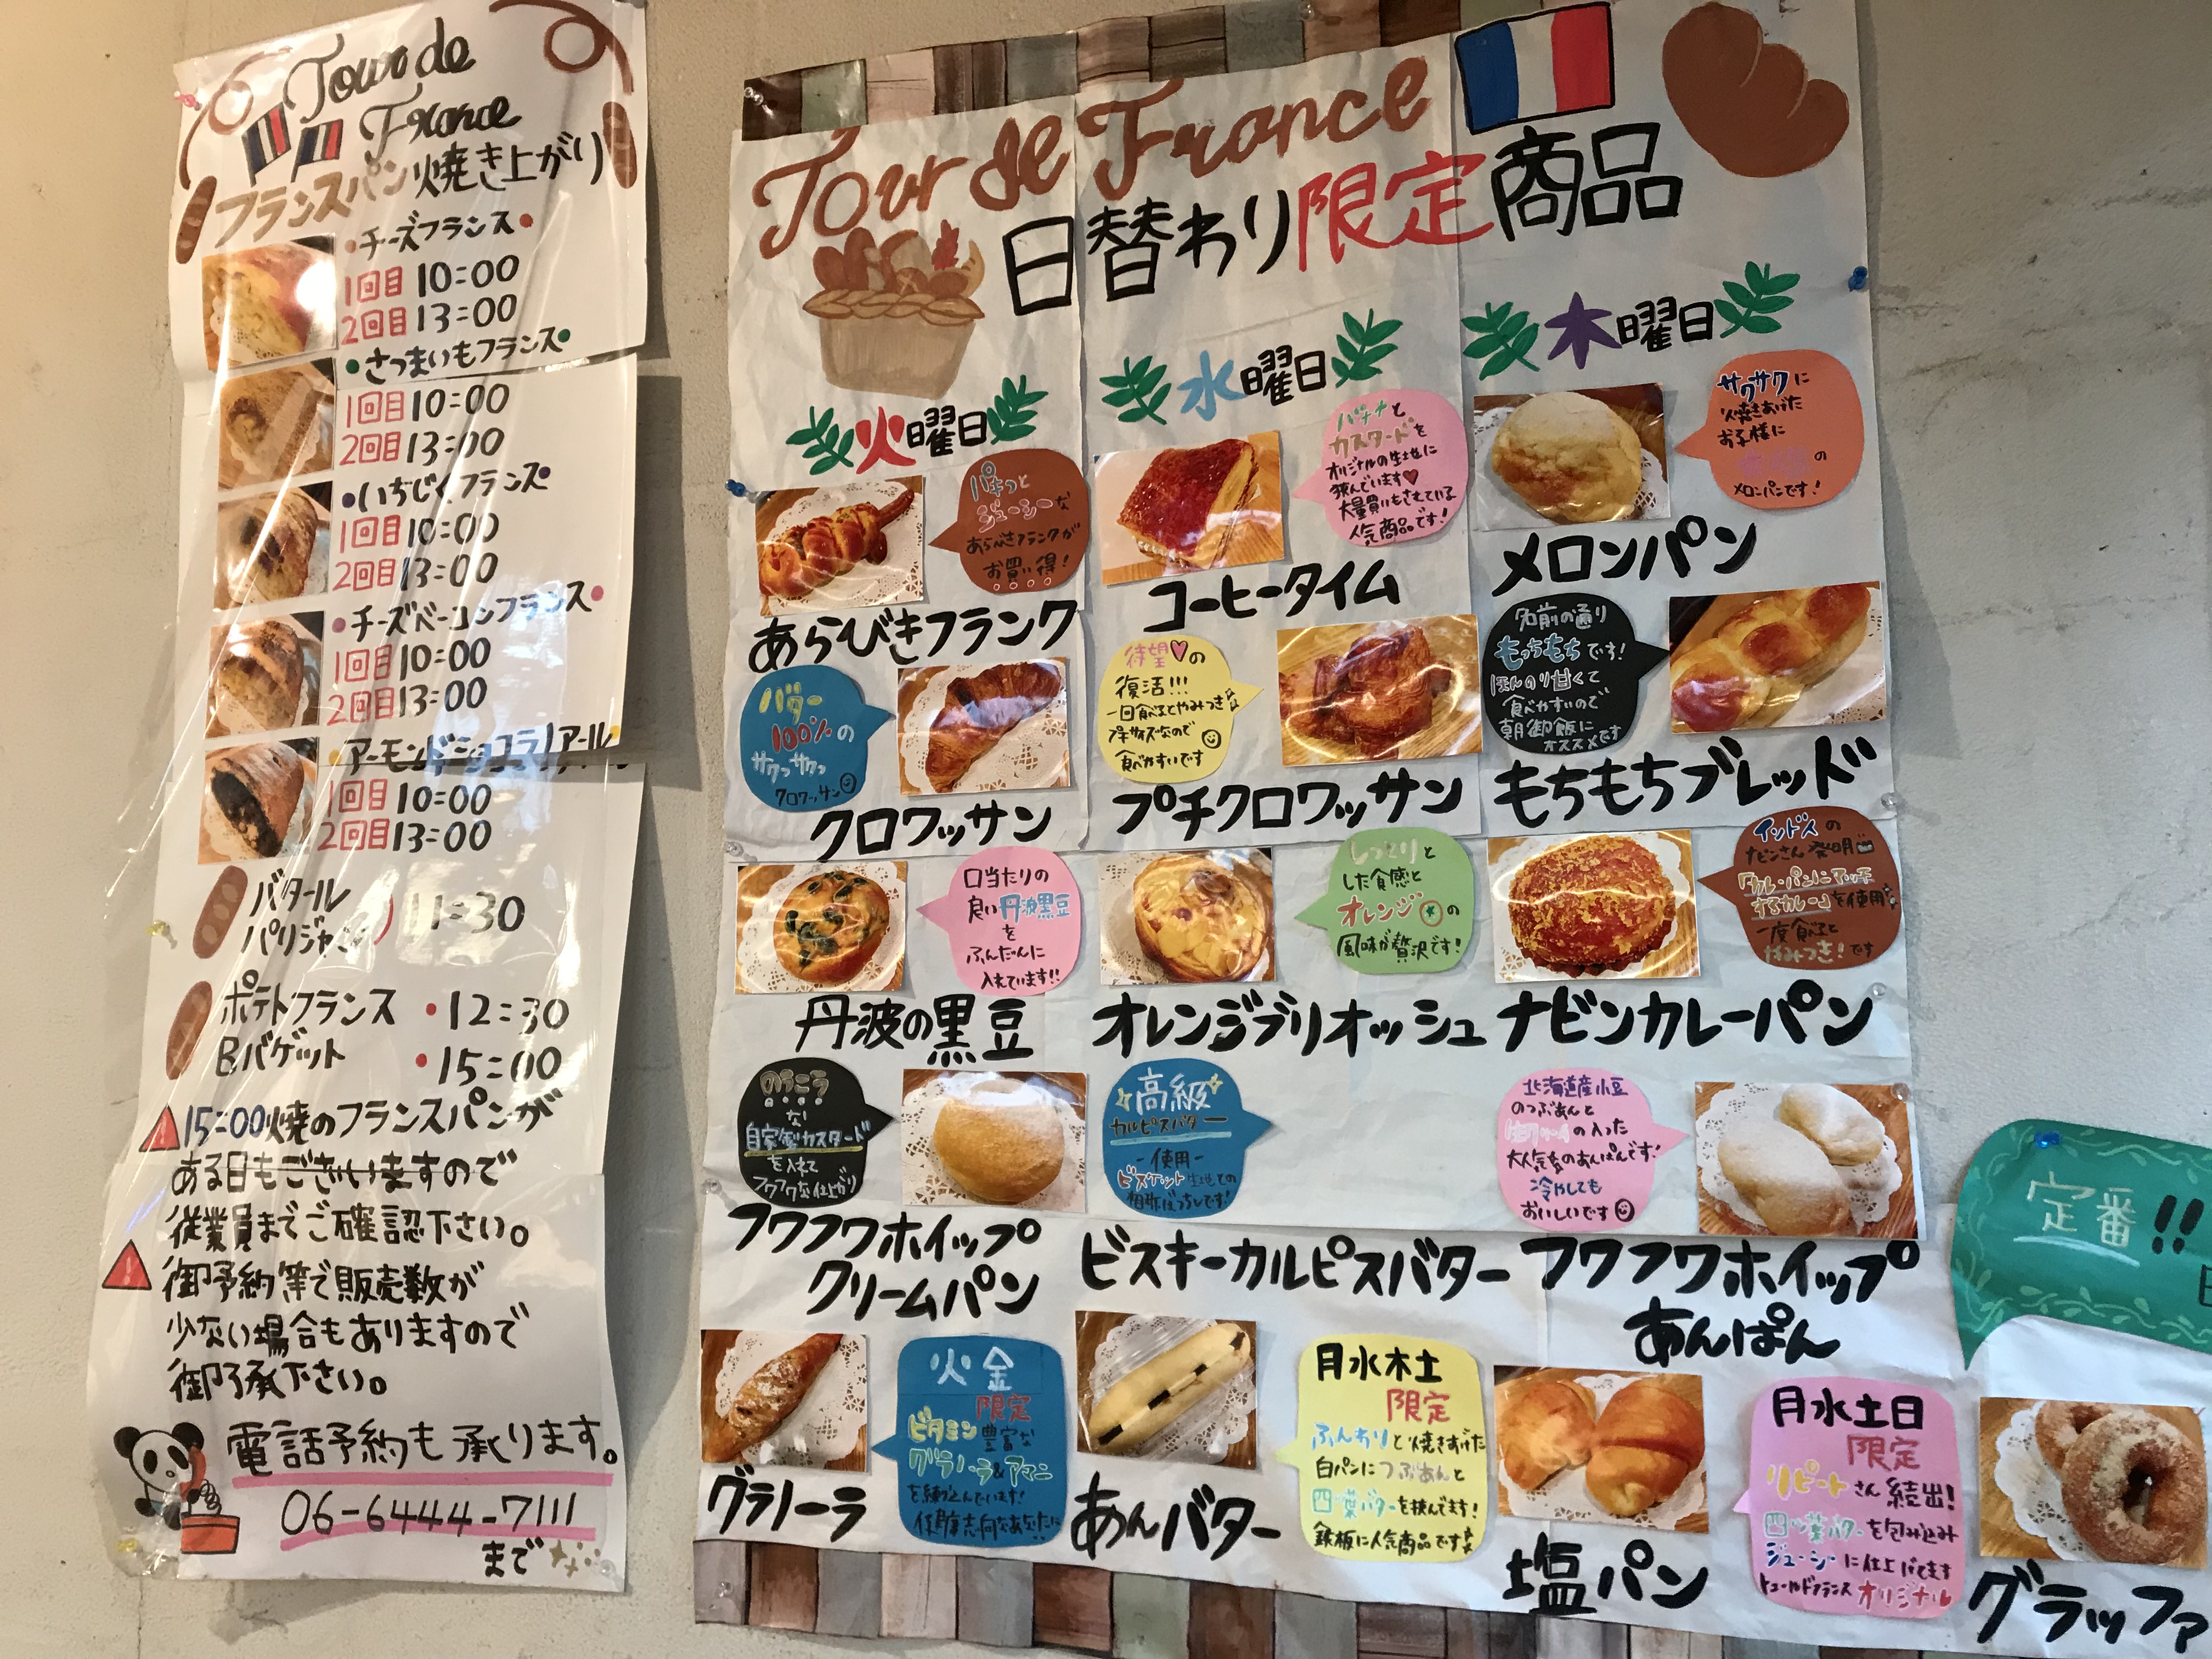 Tour de
France
フランスパン焼き上がり
・チーズフランス・
1回目 10:00
2回目 13:00
・さつまいもフランス・
1回目 10:00
2回目 13:00
・いちじくフランス・
1回目 10:00
2回目 13:00
・チーズベーコンフランス・
1回目 10:00
2回目 13:00
・アーモンドショコラノアール
1回目 10:00
2回目 13:00
バタール
パリジャン
11:30
ポテトフランス ・12:30
Bバゲット ・15:00
15:00焼のフランスパンが
ある日もございますので
従業員までご確認下さい。
御予約等で販売数が
少ない場合もありますので
御了承下さい。
電話予約も承ります。
06-6444-7111
まで
Tour de France
日替わり限定商品
火曜日
パキッと
ジューシーな
あらびきフランクが
お買い得!
あらびきフランク
バター
100%の
サクっサクっ
クロワッサン
クロワッサン
口当たりの
良い丹波黒豆
を
ふんだんに
入れています!!
丹波の黒豆
のうこう
な
自家製カスタード
を入れて
フワフワな仕上がり
フワフワホイップ
クリームパン
火 金
限定
ビタミン豊富な
グラノーラ&アマニ
を練り込んでいます!
グラノーラ
水曜日
バナナと
カスタードを
オリジナルの生地に
挟んでいます♥
大量買いもされている
人気商品です!
コーヒータイム
待望♥の
復活!!!
一回食べるとやみつき
プチサイズなので
食べやすいです
プチクロワッサン
しっとりと
した食感と
オレンジの
風味が贅沢です!
オレンジブリオッシュ
高級
カルピスバター
-使用-
ビスケット生地との
相性ばっちしです!
ビスキーカルピスバター
月水木土
限定
ふんわりと焼きあげた
白パンにつぶあんと
四つ葉バターを挟んでます!
鉄板に人気商品です
あんバター
木曜日
サクサクに
焼きあげた
お子様に
の
メロンパンです!
メロンパン
名前の通り
もっちもちです!
ほんのり甘くて
食べやすいので
朝御飯に
オススメです
もちもちブレッド
インド人の
ナビンさん発明
「カレーパンにマッチ
するカレー」を使用
一度食べると
やみつき!です
ナビンカレーパン
北海道産小豆
のつぶあんと
の入った
大人気のあんぱんです!
冷やしても
おいしいです
フワフワホイップ
あんぱん
月水土日
限定
リピートさん続出!
四つ葉バターを包み込み
ジューシーに仕上げてます
トゥールドフランスオリジナル
塩パン
定番!!
グラッファ